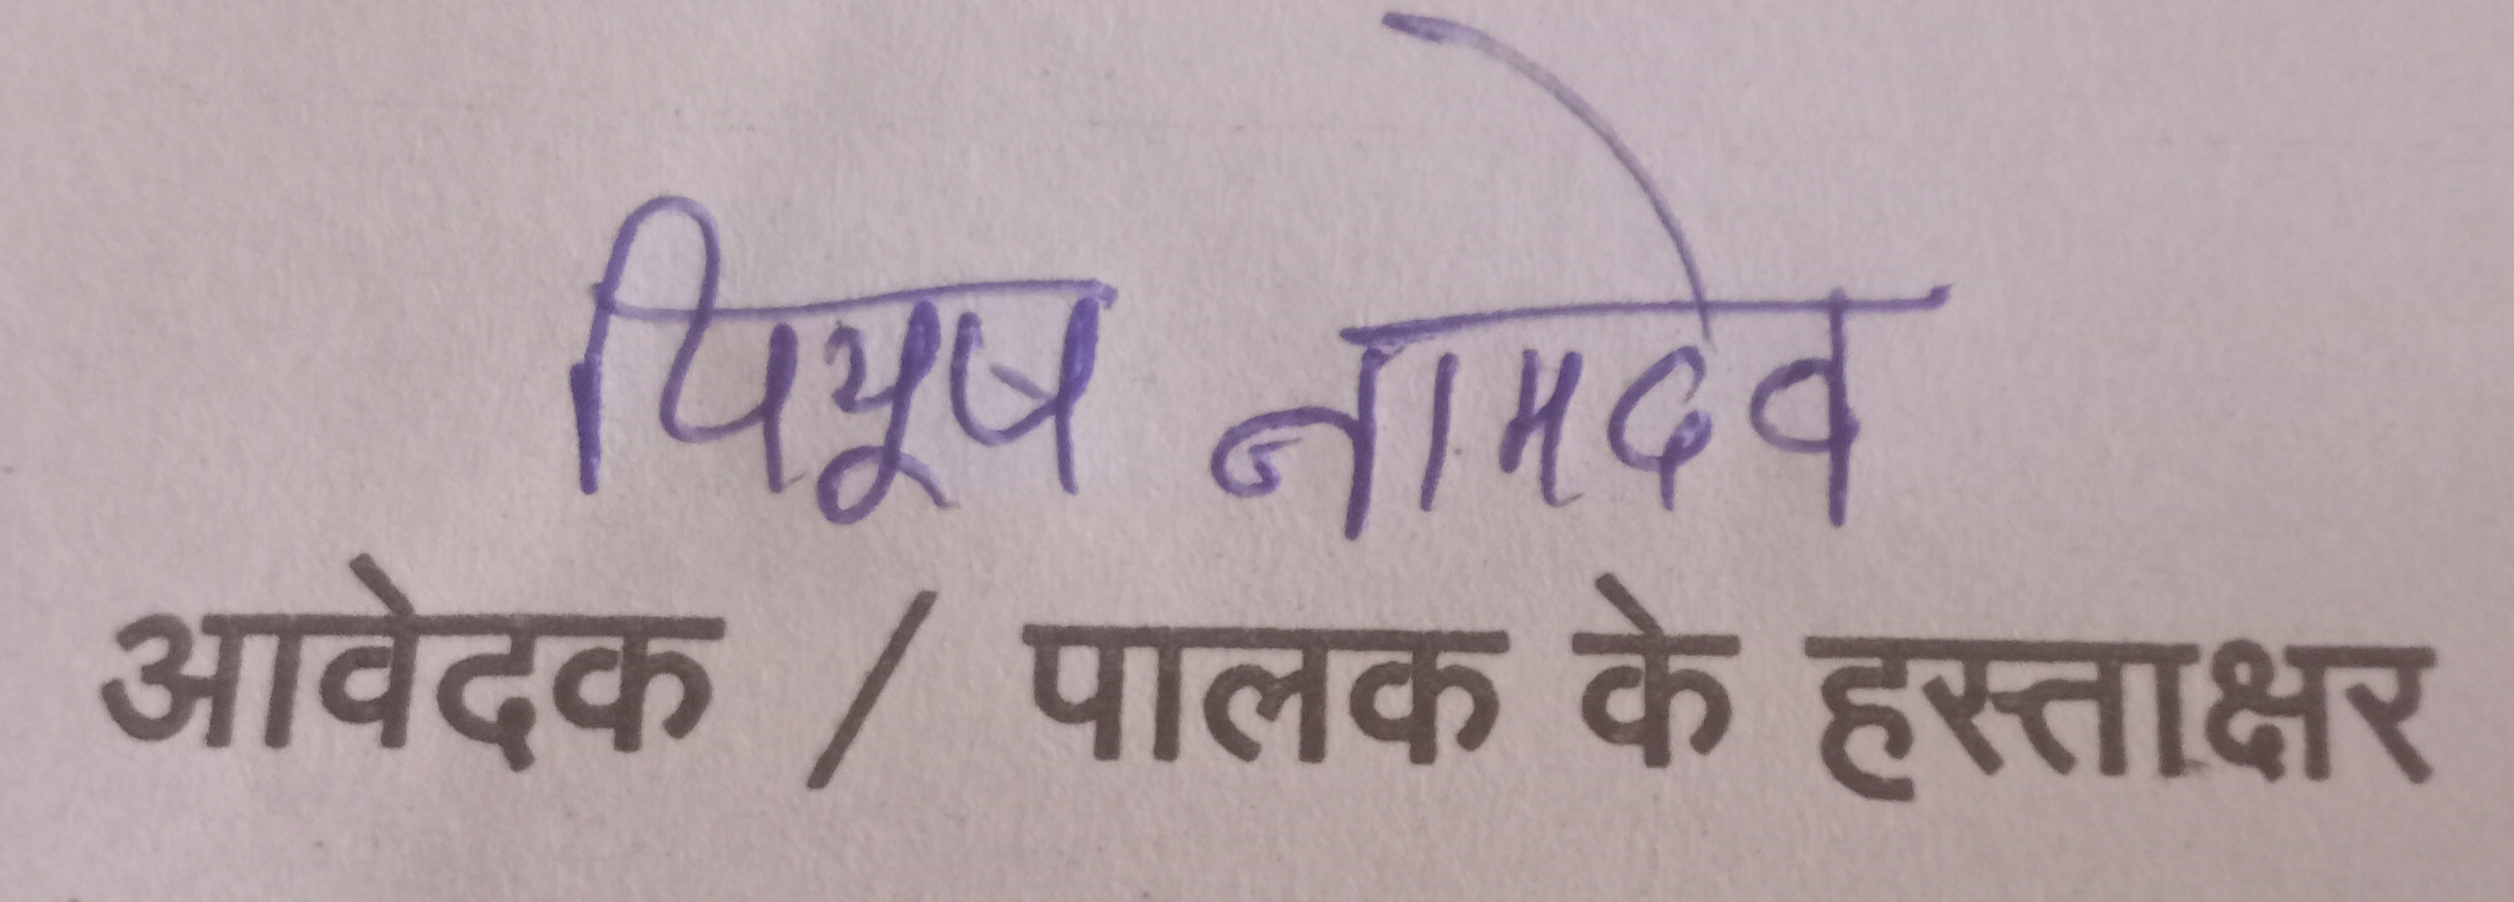 पियूष नामदेव
आवेदक / पालक के हस्ताक्षर